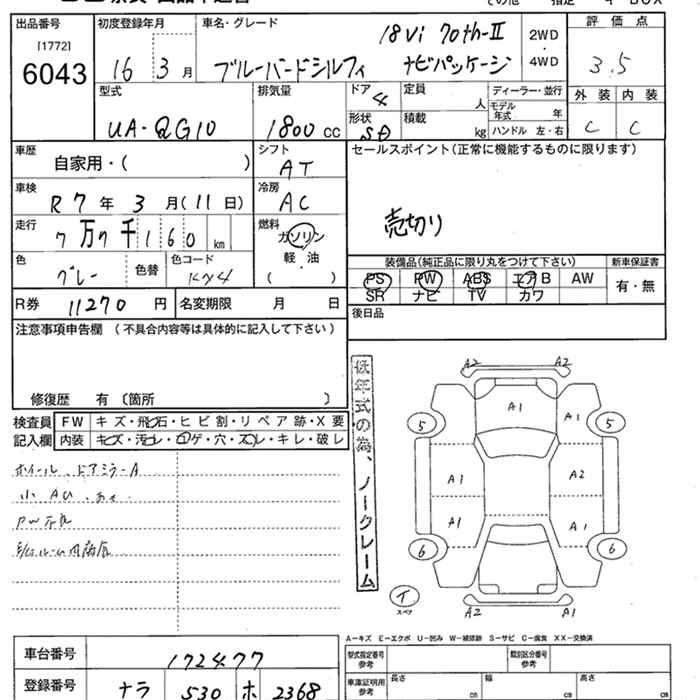 出品番号 初度登録年月 車名・グレード 評価点
[1772] 18Vi 70th-II 2WD
6043 16 3月 ブルーバードシルフィ ナビパッケージ ・4WD 3.5
型式 排気量 ドア 定員 ディーラー・並行 外装 内装
4 人 モデル年式 年
UA-QG10 1800cc 形状 SD 積載 kg ハンドル 左・右 C C
車歴 シフト セールスポイント(正常に機能するものに限ります)
自家用・( ) AT
車検 冷房
R7年 3月(11日) AC
走行 燃料 売切り
7万7千160km ガソリン
軽・油
( )
色 色替 色コード 装備品(純正品に限り丸をつけて下さい) 新車保証書
グレー KY4 PS PW ABS エアB AW 有・無
R券 11270円 名変期限 月 日 SR ナビ TV カワ
注意事項申告欄 (不具合内容等は具体的に記入して下さい) 後日品
修復歴 有 〔箇所 〕
検査員 FW キズ・飛石・ヒビ割・リペア跡・X要
記入欄 内装 キズ・汚コレ・コゲ・穴・スレ・キレ・破レ
ホイール、ドアミラーA
小AU
PW不良
低年式の為、ノークレーム
A2 A2
A1 A1
5 5
A1 A2
A1 A1
6 6
T
スペア
A2 A1
A-キズ E-エクボ U-凹み W-補修跡 S-サビ C-腐食 XX-交換済
車台番号 172477 型式指定番号 参考 類別区分番号 参考
登録番号 ナラ 530 ホ 2368 車庫証明用 参考 長さ cm 幅 cm 高さ cm